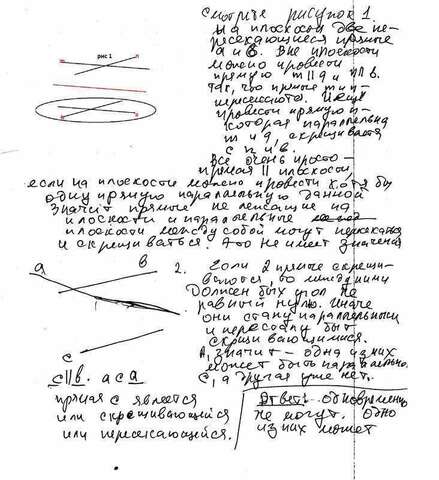 рис 1
смотрите рисунок 1.
На плоскости две пе-
ресекающиеся прямые
а и в. Вне плоскости
можно провести
прямую m || а и n || в.
так, что прямые m и n
пересекаются. И еще
провести прямую
которая параллельна
m и а, скрещивается
с n и в.
Все очень просто -
прямая || плоскости
если на плоскости можно провести хотя бы
одну прямую параллельную данной
значит прямые не лежащие на
плоскости и параллельные
плоскости между собой могут пересекаться
и скрещиваться. Это не имеет значения
а в
с
2. Если 2 прямые скрещи-
ваются, то между ними
должен быть угол не
равный нулю. Иначе
они станут параллельными
и перестанут быть
скрещивающимися.
А, значит - одна из них
может быть параллельна
с, а другая уже нет.
с || в. а с а
прямая с является
или скрещивающейся
или пересекающейся.
Ответ: одновременно
не могут. Одно
из них может